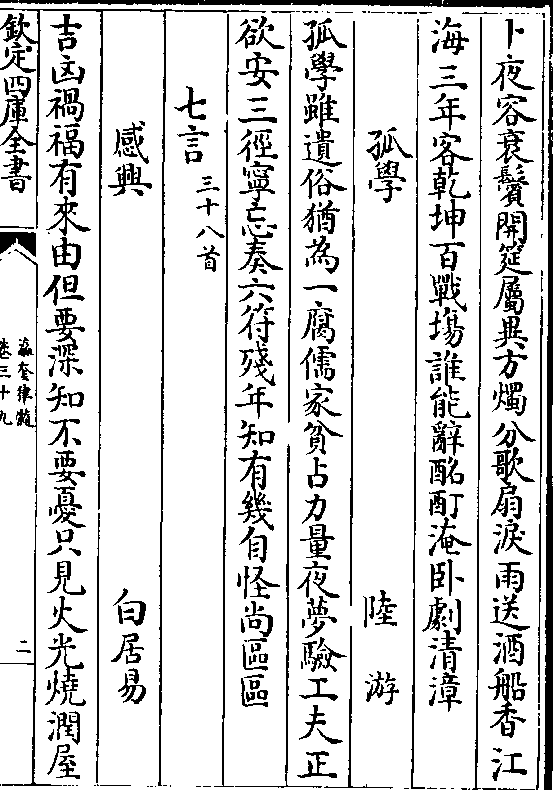 卜夜容衰鬢開筵屬異方燭分歌扇淚雨送酒船香江
海三年客乾坤百戰場誰能辭酩酊淹卧劇清漳
孤學 陸游
孤學雖遺俗猶為一腐儒家貧占力量夜夢驗工夫正
欲安三徑寧忘奏六符殘年知有幾自怪尚區區
七言 三十八首
感興 白居易
吉凶禍福有來由但要深知不要憂只見火光燒潤屋
欽定四庫全書
瀛奎律髓
卷三十九
二